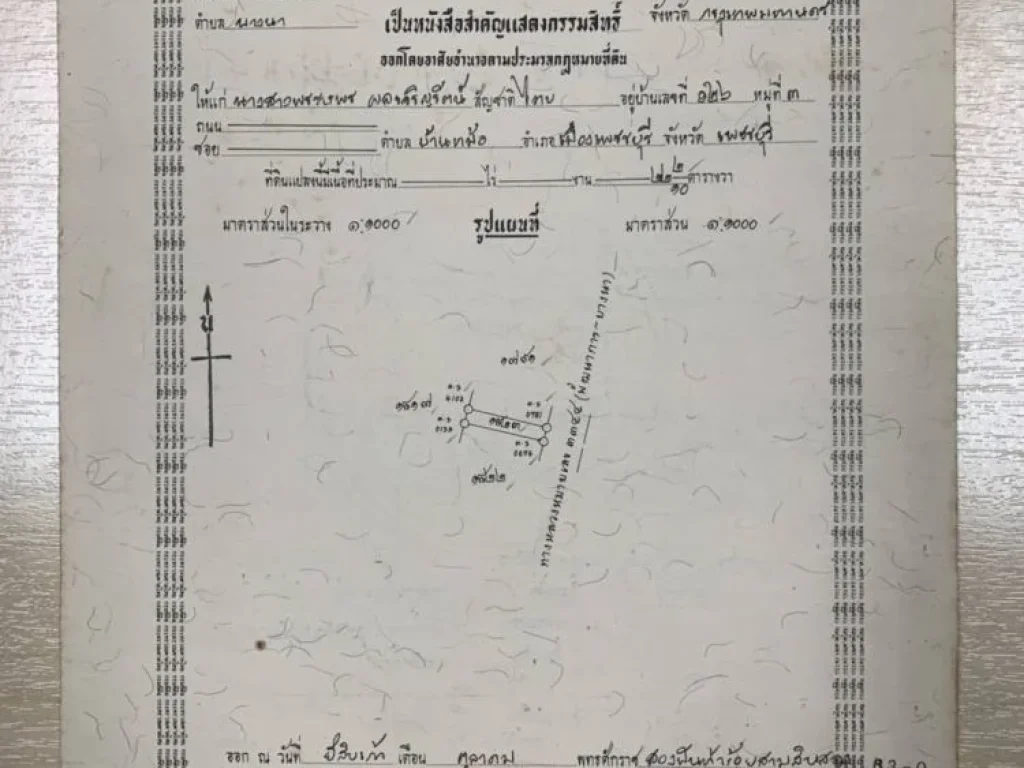 ตำบล บางนา เป็นหนังสือสำคัญแสดงกรรมสิทธิ์ จังหวัด กรุงเทพมหานคร
ออกโดยอาศัยอำนาจตามประมวลกฎหมายที่ดิน
ให้แก่ นางสาวพรรเพร สัญชาติ ไทย อยู่บ้านเลขที่ ๑๒๖ หมู่ที่ ๓
ถนน
ซอย ตำบล บ้านหม้อ อำเภอ เมืองเพชรบุรี จังหวัด เพชรบุรี
ที่ดินแปลงนี้มีเนื้อที่ประมาณ ไร่ งาน ตารางวา
มาตราส่วนในระวาง ๑:๑๐๐๐ รูปแผนที่ มาตราส่วน ๑:๑๐๐๐
น
๑๗๔๑
๑๘๑๗
ทางหลวงหมายเลข ๓๓๔๔ (พัฒนาการ-บางนา)
ออก ณ วันที่ ยี่สิบเก้า เดือน ตุลาคม พุทธศักราช สองพันห้าร้อยสามสิบสอง